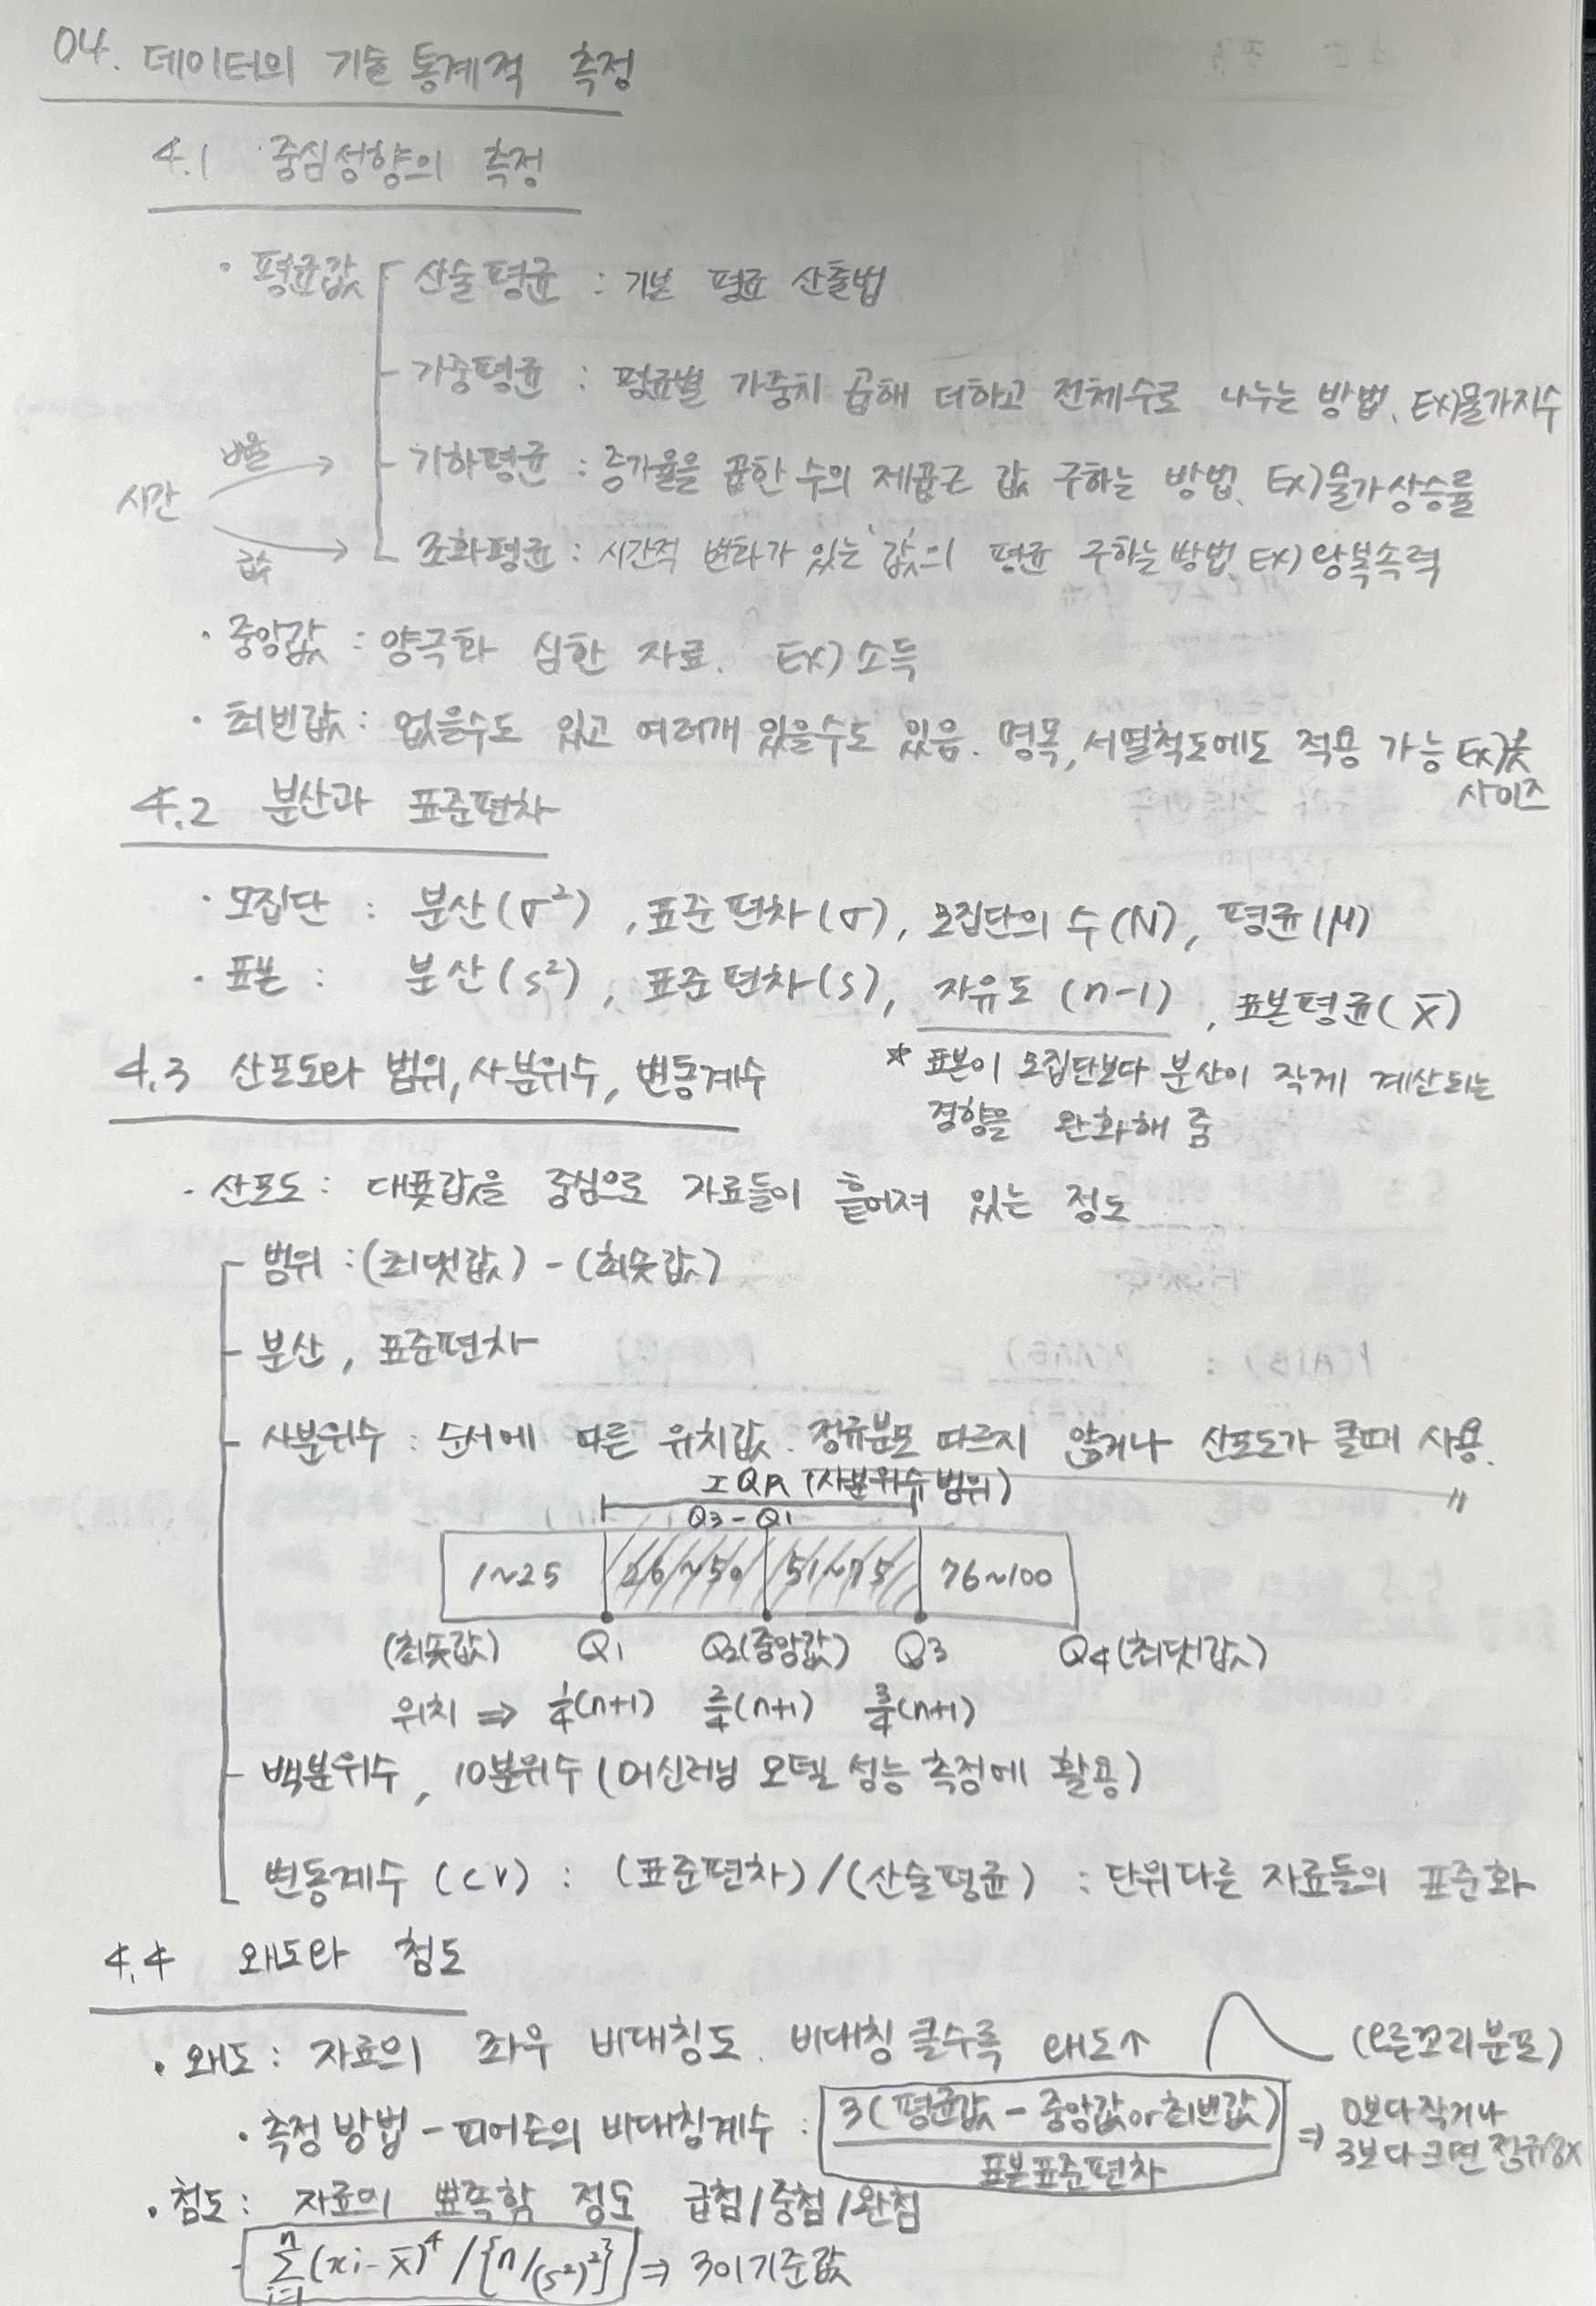 04. 데이터의 기술 통계적 측정
4.1 중심성향의 측정
• 평균값 산술평균 : 기본 평균 산출법
가중평균 : 평균별 가중치 곱해 더하고 전체수로 나누는 방법. Ex)물가지수
시간 비율 → 기하평균 : 증가율을 곱한 수의 제곱근 값 구하는 방법. Ex)물가상승률
→ 조화평균 : 시간적 변화가 있는 값의 평균 구하는 방법. Ex) 왕복속력
• 중앙값 : 양극화 심한 자료. Ex) 소득
• 최빈값 : 없을수도 있고 여러개 있을수도 있음. 명목, 서열척도에도 적용 가능 Ex)옷
사이즈
4.2 분산과 표준편차
• 모집단 : 분산(σ²), 표준편차(σ), 모집단의 수(N), 평균(μ)
• 표본 : 분산(s²), 표준편차(s), 자유도 (n-1), 표본평균(x̄)
* 표본이 모집단보다 분산이 작게 계산되는
경향을 완화해 줌
4.3 산포도와 범위, 사분위수, 변동계수
- 산포도 : 대푯값을 중심으로 자료들이 흩어져 있는 정도
범위 : (최댓값) - (최솟값)
분산, 표준편차
사분위수 : 순서에 따른 위치값. 정규분포 따르지 않거나 산포도가 클때 사용.
IQR (사분위수 범위) "
Q3 - Q1
1~25 26~50 51~75 76~100
(최솟값) Q1 Q2(중앙값) Q3 Q4(최댓값)
위치 ⇒ 1/4(n+1) 2/4(n+1) 3/4(n+1)
백분위수, 10분위수 (머신러닝 모델 성능 측정에 활용)
변동계수 (cv) : (표준편차)/(산술평균) : 단위다른 자료들의 표준화
4.4 왜도와 첨도
• 왜도 : 자료의 좌우 비대칭도. 비대칭 클수록 왜도↑ (오른꼬리분포)
• 측정 방법 - 피어슨의 비대칭계수 : 3(평균값 - 중앙값or최빈값) / 표본표준편차 ⇒ 0보다 작거나
3보다 크면 정규분포X
• 첨도 : 자료의 뾰족함 정도 급첨/중첨/완첨
- Σ(i=1→n) (xi-x̄)⁴ / {n/(s²)²} ⇒ 3이 기준값